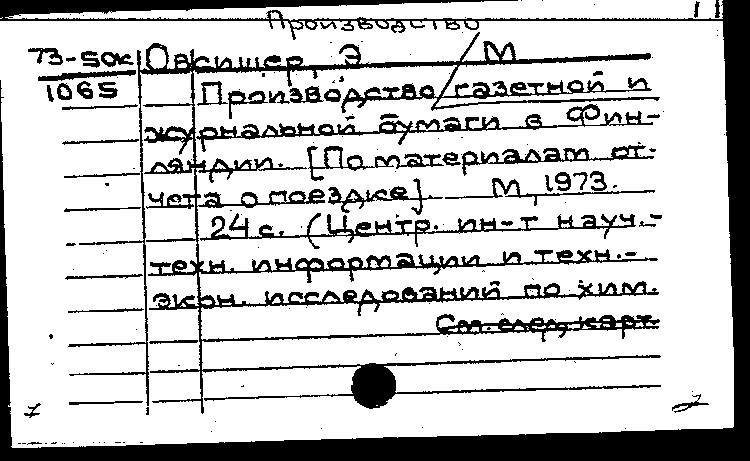 Производство
73-50к Овсищер, Э М
1065 Производство газетной и
журнальной бумаги в Фин-
ляндии. [По материалам от-
чета о поездке]. М, 1973.
24 с. (Центр. ин-т науч.-
техн. информации и техн.-
экон. исследований по хим.
См. след. карт.